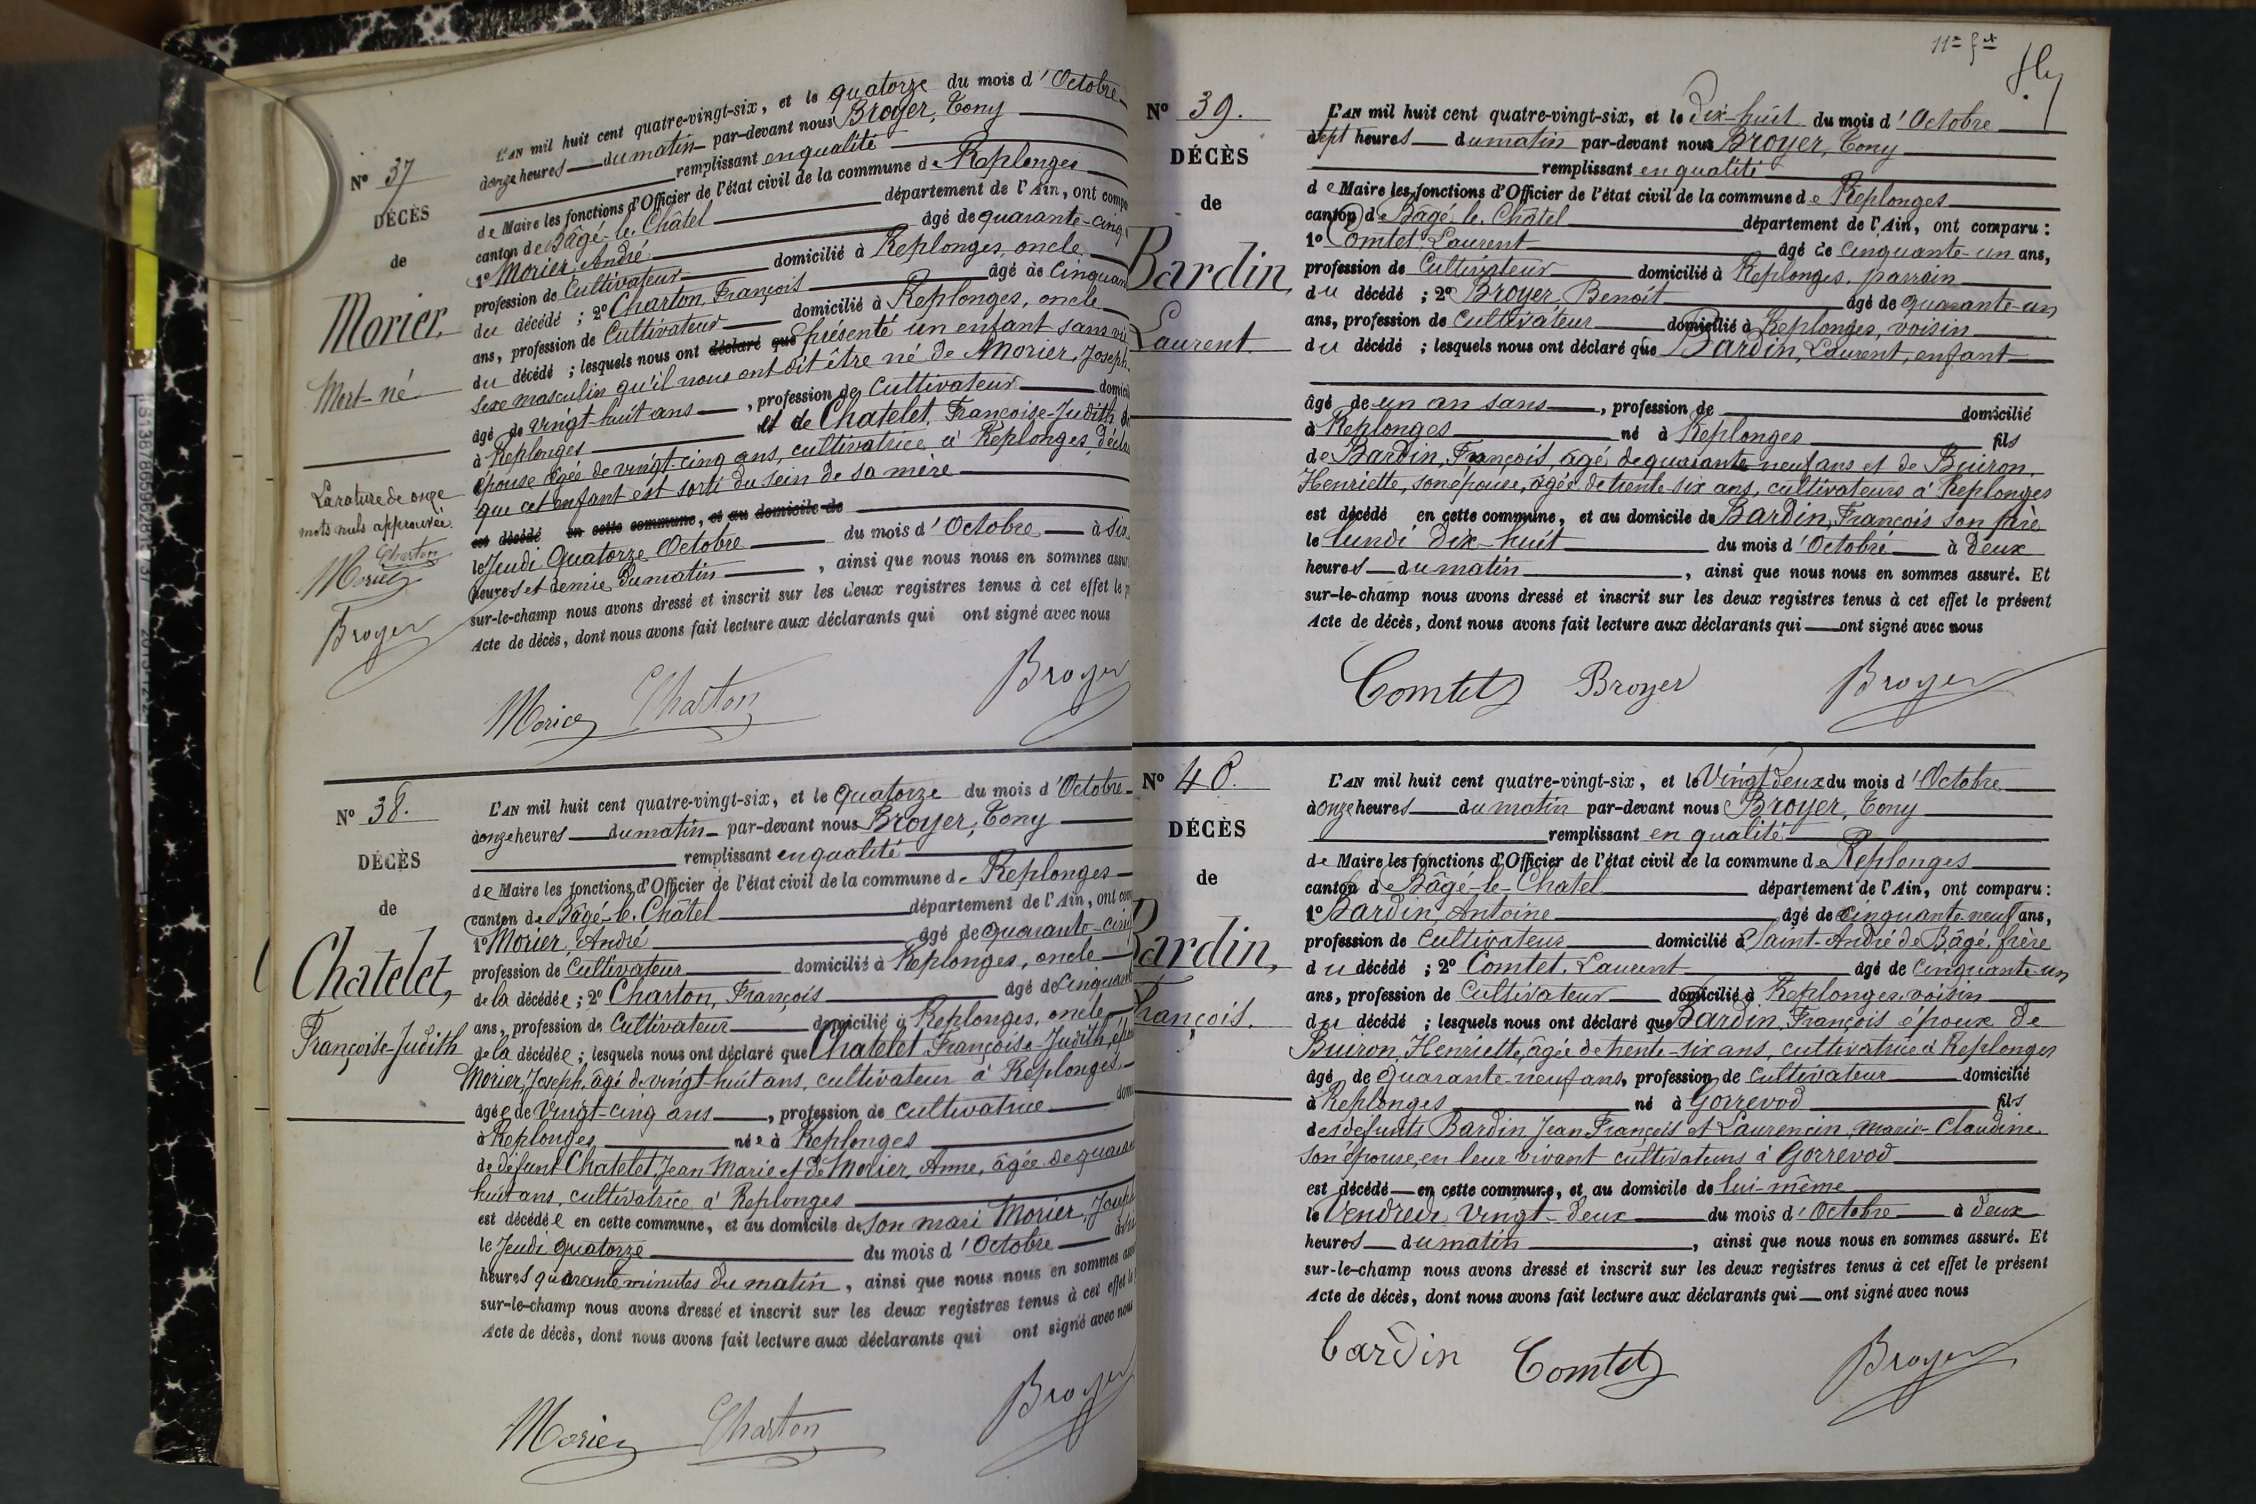 N° 37
DÉCÈS
de
Morier,
Mort-né
La rature de onze
mots nuls approuvée.
Charton
Morier
Broyer
L'AN mil huit cent quatre-vingt-six, et le quatorze du mois d'Octobre
à onze heures du matin par-devant nous Broyer, Tony
remplissant en qualité
de Maire les fonctions d'Officier de l'état civil de la commune de Replonges
canton de Bâgé-le-Châtel département de l'Ain, ont comp
1° Morier, André âgé de quarante-cinq
profession de Cultivateur domicilié à Replonges, oncle
du décédé ; 2° Charton, François âgé de Cinquan
ans, profession de Cultivateur domicilié à Replonges, oncle
du décédé ; lesquels nous ont déclaré que présenté un enfant sans vie
sexe masculin qu'il nous ont dit être né de Morier, Joseph
âgé de vingt-huit ans, profession de Cultivateur domici
à Replonges et de Chatelet, Françoise-Judith
épouse âgée de vingt-cinq ans, cultivatrice à Replonges, décla
que cet enfant est sorti du sein de sa mère
est décédé en cette commune, et au domicile de
le Jeudi Quatorze Octobre du mois d'Octobre à six
heures et demie du matin, ainsi que nous nous en sommes assur
sur-le-champ nous avons dressé et inscrit sur les deux registres tenus à cet effet le p
Acte de décès, dont nous avons fait lecture aux déclarants qui ont signé avec nous
Morier Charton Broyer
N° 38.
DÉCÈS
de
Chatelet,
Françoise-Judith
L'AN mil huit cent quatre-vingt-six, et le quatorze du mois d'Octobre
à onze heures du matin par-devant nous Broyer, Tony
remplissant en qualité
de Maire les fonctions d'Officier de l'état civil de la commune de Replonges
canton de Bâgé-le-Châtel département de l'Ain, ont com
1° Morier, André âgé de quarante-cinq
profession de Cultivateur domicilié à Replonges, oncle
de la décédée ; 2° Charton, François âgé de Cinquant
ans, profession de Cultivateur domicilié à Replonges, oncle
de la décédée ; lesquels nous ont déclaré que Chatelet Françoise-Judith, épou
Morier Joseph, âgé de vingt-huit ans, cultivateur à Replonges
âgée de Vingt-cinq ans, profession de cultivatrice dom
à Replonges née à Replonges
de défunt Chatelet, Jean Marie et de Morier, Anne, âgée de quaran
huit ans, cultivatrice à Replonges
est décédée en cette commune, et au domicile de son mari Morier, Joseph
le Jeudi quatorze du mois d'Octobre
heures quarante minutes du matin, ainsi que nous nous en sommes assu
sur-le-champ nous avons dressé et inscrit sur les deux registres tenus à cet effet le
Acte de décès, dont nous avons fait lecture aux déclarants qui ont signé avec nous
Morier Charton Broyer
N° 39.
DÉCÈS
de
Bardin,
Laurent.
L'AN mil huit cent quatre-vingt-six, et le Dix-huit du mois d'Octobre
à sept heures du matin par-devant nous Broyer, Tony
remplissant en qualité
de Maire les fonctions d'Officier de l'état civil de la commune de Replonges
canton de Bâgé-le-Châtel département de l'Ain, ont comparu :
1° Comtet, Laurent âgé de cinquante-un ans,
profession de Cultivateur domicilié à Replonges, parrain
du décédé ; 2° Broyer, Benoit âgé de quarante-un
ans, profession de Cultivateur domicilié à Replonges, voisin
du décédé ; lesquels nous ont déclaré que Bardin, Laurent, enfant
âgé de un an sans, profession de domicilié
à Replonges né à Replonges fils
de Bardin, François, âgé de quarante-neuf ans et de Buiron,
Henriette, son épouse, âgée de trente-six ans, cultivateurs à Replonges
est décédé en cette commune, et au domicile de Bardin, François son père
le lundi dix-huit du mois d'Octobre à deux
heures du matin, ainsi que nous nous en sommes assuré. Et
sur-le-champ nous avons dressé et inscrit sur les deux registres tenus à cet effet le présent
Acte de décès, dont nous avons fait lecture aux déclarants qui ont signé avec nous
Comtet Broyer Broyer
N° 40.
DÉCÈS
de
Bardin,
François.
L'AN mil huit cent quatre-vingt-six, et le Vingt deux du mois d'Octobre
à onze heures du matin par-devant nous Broyer, Tony
remplissant en qualité
de Maire les fonctions d'Officier de l'état civil de la commune de Replonges
canton de Bâgé-le-Chatel département de l'Ain, ont comparu :
1° Bardin, Antoine âgé de cinquante-neuf ans,
profession de Cultivateur domicilié à Saint-André de Bâgé, frère
du décédé ; 2° Comtet, Laurent âgé de cinquante-un
ans, profession de Cultivateur domicilié à Replonges, voisin
du décédé ; lesquels nous ont déclaré que Bardin, François époux de
Buiron, Henriette, âgée de trente-six ans, cultivatrice à Replonges
âgé de quarante-neuf ans, profession de Cultivateur domicilié
à Replonges né à Gorrevod fils
des défunts Bardin Jean François et Laurencin, Marie-Claudine
son épouse, en leur vivant cultivateurs à Gorrevod
est décédé en cette commune, et au domicile de lui-même
le Vendredi vingt-deux du mois d'Octobre à deux
heures du matin, ainsi que nous nous en sommes assuré. Et
sur-le-champ nous avons dressé et inscrit sur les deux registres tenus à cet effet le présent
Acte de décès, dont nous avons fait lecture aux déclarants qui ont signé avec nous
bardin Comtet Broyer